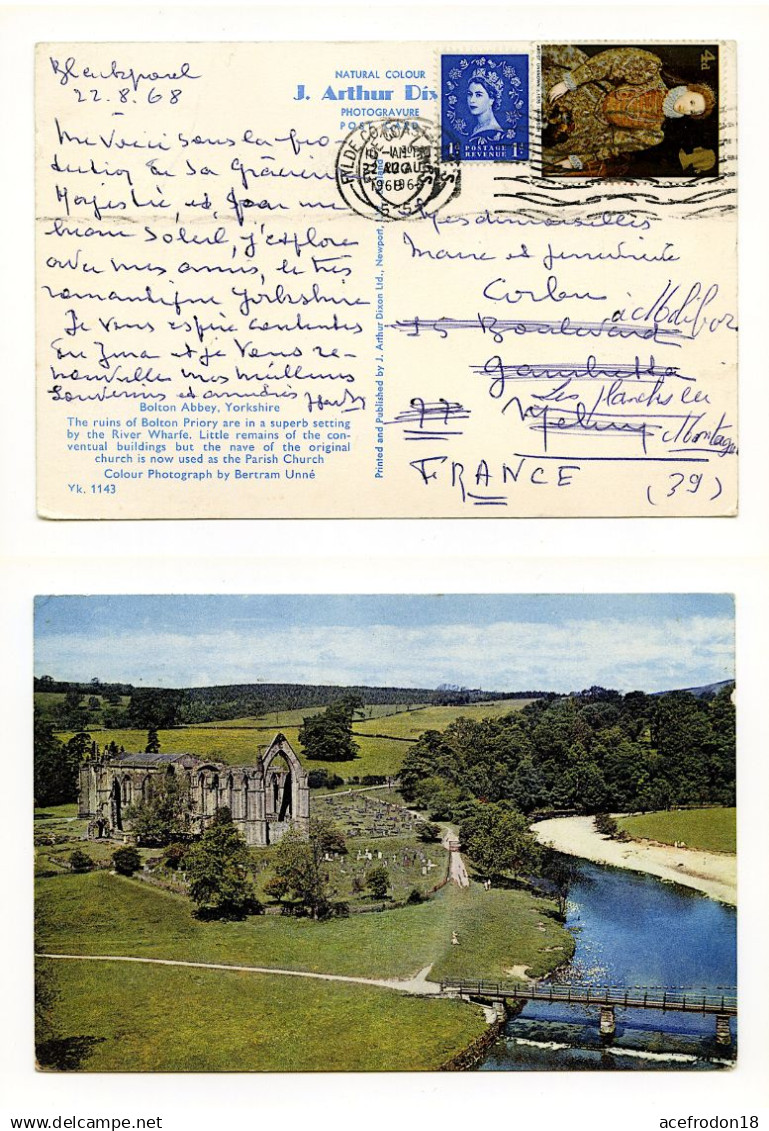 Blackpool
22.8.68
NATURAL COLOUR
J. Arthur Dix
PHOTOGRAVURE
POST
POSTAGE
REVENUE
4d
22 AUG
1968
555
Me voici sous la pro
tection de Sa Gracieuse
Majesté, et, par un
beau soleil, j'explore
avec mes amis, le très
romantique Yorkshire
Je vous espère contentes
du Jura et je vous re-
nouvelle mes meilleurs
souvenirs et amitiés
Mesdemoiselles
Marie et
à Molibor
15 Boulevard
Gambetta
Les Planches en
77 Melun Montagne
FRANCE
(39)
Printed and Published by J. Arthur Dixon Ltd., Newport,
Bolton Abbey, Yorkshire
The ruins of Bolton Priory are in a superb setting
by the River Wharfe. Little remains of the con-
ventual buildings but the nave of the original
church is now used as the Parish Church
Colour Photograph by Bertram Unné
Yk. 1143
acefrodon18